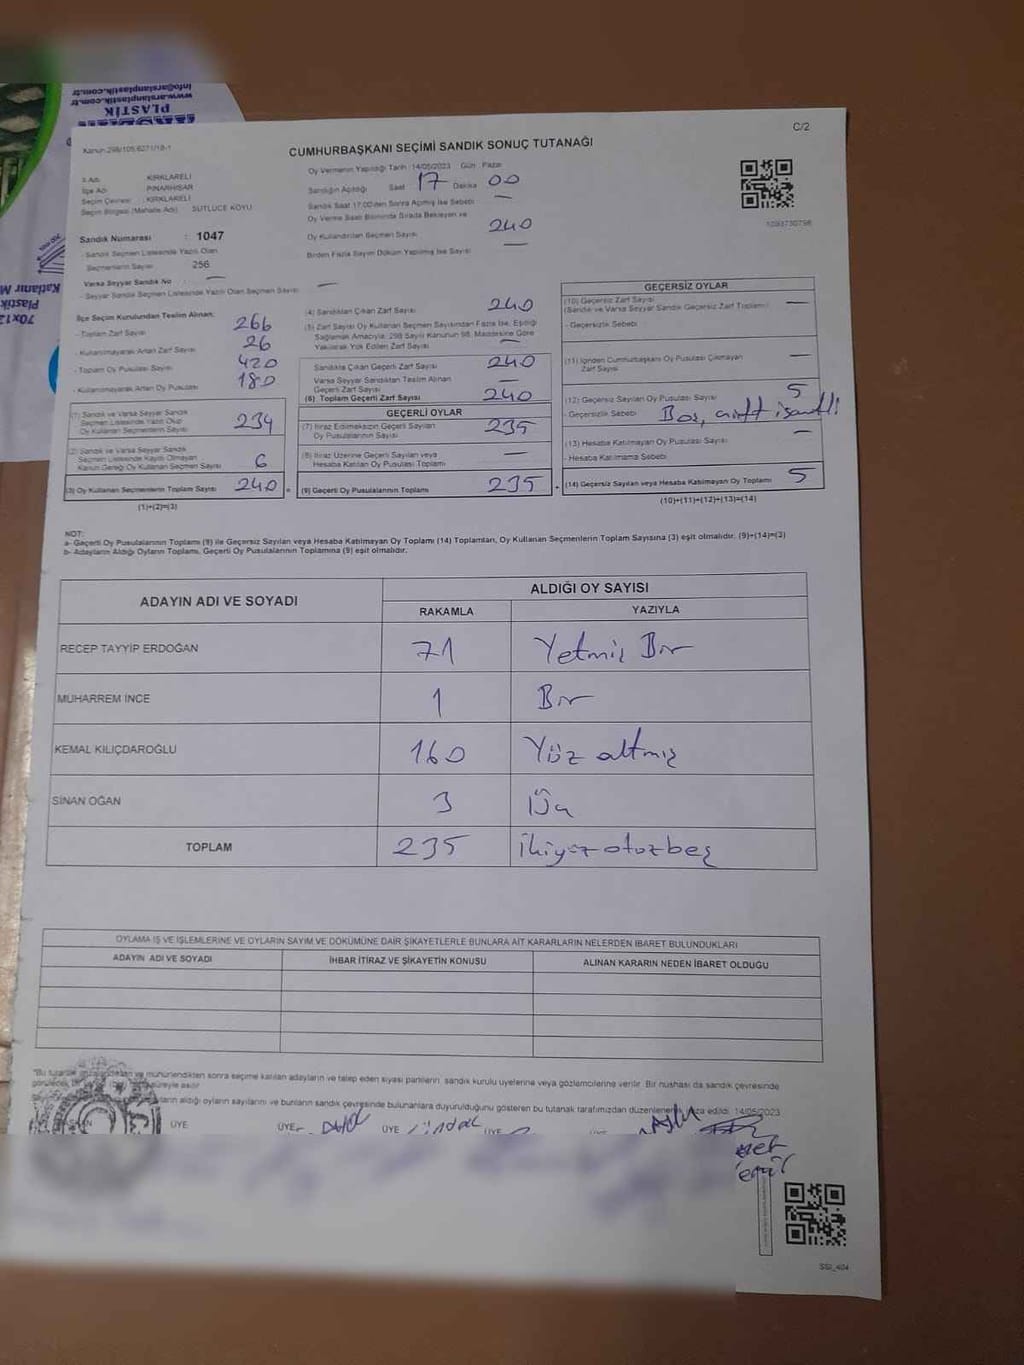 info@arslanplastik.com.tr
www.arslanplastik.com.tr
PLASTİK
Katlanır M
Plastik
70x12
C/2
Kanun 298/105,6271/18-1
CUMHURBAŞKANI SEÇİMİ SANDIK SONUÇ TUTANAĞI
İl Adı : KIRKLARELİ
İlçe Adı : PINARHİSAR
Seçim Çevresi : KIRKLARELİ
Seçim Bölgesi (Mahalle Adı) : SÜTLÜCE KÖYÜ
Oy Vermenin Yapıldığı Tarih : 14/05/2023 Gün : Pazar
Sandığın Açıldığı Saat 17 Dakika 00
Sandık Saat 17:00'den Sonra Açılmış İse Sebebi —
Oy Verme Saati Bitiminde Sırada Bekleyen ve
Oy Kullandırılan Seçmen Sayısı 240
Birden Fazla Sayım Döküm Yapılmış İse Sayısı —
1093730796
Sandık Numarası : 1047
- Sandık Seçmen Listesinde Yazılı Olan
Seçmenlerin Sayısı 256
Varsa Seyyar Sandık No : —
- Seyyar Sandık Seçmen Listesinde Yazılı Olan Seçmen Sayısı —
İlçe Seçim Kurulundan Teslim Alınan:
- Toplam Zarf Sayısı 266
- Kullanılmayarak Artan Zarf Sayısı 26
- Toplam Oy Pusulası Sayısı 420
- Kullanılmayarak Artan Oy Pusulası 180
(1) Sandık ve Varsa Seyyar Sandık
Seçmen Listesinde Yazılı Olup
Oy Kullanan Seçmenlerin Sayısı 234
(2) Sandık ve Varsa Seyyar Sandık
Seçmen Listesinde Kayıtlı Olmayan
Kanun Gereği Oy Kullanan Seçmen Sayısı 6
(3) Oy Kullanan Seçmenlerin Toplam Sayısı 240 =
(1)+(2)=(3)
(4) Sandıktan Çıkan Zarf Sayısı 240
(5) Zarf Sayısı Oy Kullanan Seçmen Sayısından Fazla İse, Eşitliği
Sağlamak Amacıyla, 298 Sayılı Kanunun 98. Maddesine Göre
Yakılarak Yok Edilen Zarf Sayısı —
Sandıkta Çıkan Geçerli Zarf Sayısı 240
Varsa Seyyar Sandıktan Teslim Alınan
Geçerli Zarf Sayısı —
(6) Toplam Geçerli Zarf Sayısı 240
GEÇERLİ OYLAR
(7) İtiraz Edilmeksizin Geçerli Sayılan
Oy Pusulalarının Sayısı 235
(8) İtiraz Üzerine Geçerli Sayılan veya
Hesaba Katılan Oy Pusulası Toplamı —
(9) Geçerli Oy Pusulalarının Toplamı 235 +
GEÇERSİZ OYLAR
(10) Geçersiz Zarf Sayısı
(Sandık ve Varsa Seyyar Sandık Geçersiz Zarf Toplamı) —
- Geçersizlik Sebebi
(11) İçinden Cumhurbaşkanı Oy Pusulası Çıkmayan
Zarf Sayısı —
(12) Geçersiz Sayılan Oy Pusulası Sayısı 5
- Geçersizlik Sebebi Boş, çift işaretli
(13) Hesaba Katılmayan Oy Pusulası Sayısı —
- Hesaba Katılmama Sebebi
(14) Geçersiz Sayılan veya Hesaba Katılmayan Oy Toplamı 5
(10)+(11)+(12)+(13)=(14)
NOT:
a- Geçerli Oy Pusulalarının Toplamı (9) ile Geçersiz Sayılan veya Hesaba Katılmayan Oy Toplamı (14) Toplamları, Oy Kullanan Seçmenlerin Toplam Sayısına (3) eşit olmalıdır. (9)+(14)=(3)
b- Adayların Aldığı Oyların Toplamı, Geçerli Oy Pusulalarının Toplamına (9) eşit olmalıdır.
ADAYIN ADI VE SOYADI
ALDIĞI OY SAYISI
RAKAMLA YAZIYLA
RECEP TAYYİP ERDOĞAN 71 Yetmiş Bir
MUHARREM İNCE 1 Bir
KEMAL KILIÇDAROĞLU 160 Yüz altmış
SİNAN OĞAN 3 Üç
TOPLAM 235 ikiyüz otuzbeş
OYLAMA İŞ VE İŞLEMLERİNE VE OYLARIN SAYIM VE DÖKÜMÜNE DAİR ŞİKAYETLERLE BUNLARA AİT KARARLARIN NELERDEN İBARET BULUNDUKLARI
ADAYIN ADI VE SOYADI İHBAR İTİRAZ VE ŞİKAYETİN KONUSU ALINAN KARARIN NEDEN İBARET OLDUĞU
"Bu tutanak imzalandıktan ve mühürlendikten sonra seçime katılan adayların ve talep eden siyasi partilerin, sandık kurulu üyelerine veya gözlemcilerine verilir. Bir nüshası da sandık çevresinde
süreyle asılır
aldığı oyların sayılarını ve bunların sandık çevresinde bulunanlara duyurulduğunu gösteren bu tutanak tarafımızdan düzenlenerek imza edildi. 14/05/2023
ÜYE ÜYE ÜYE ÜYE
SSI_404